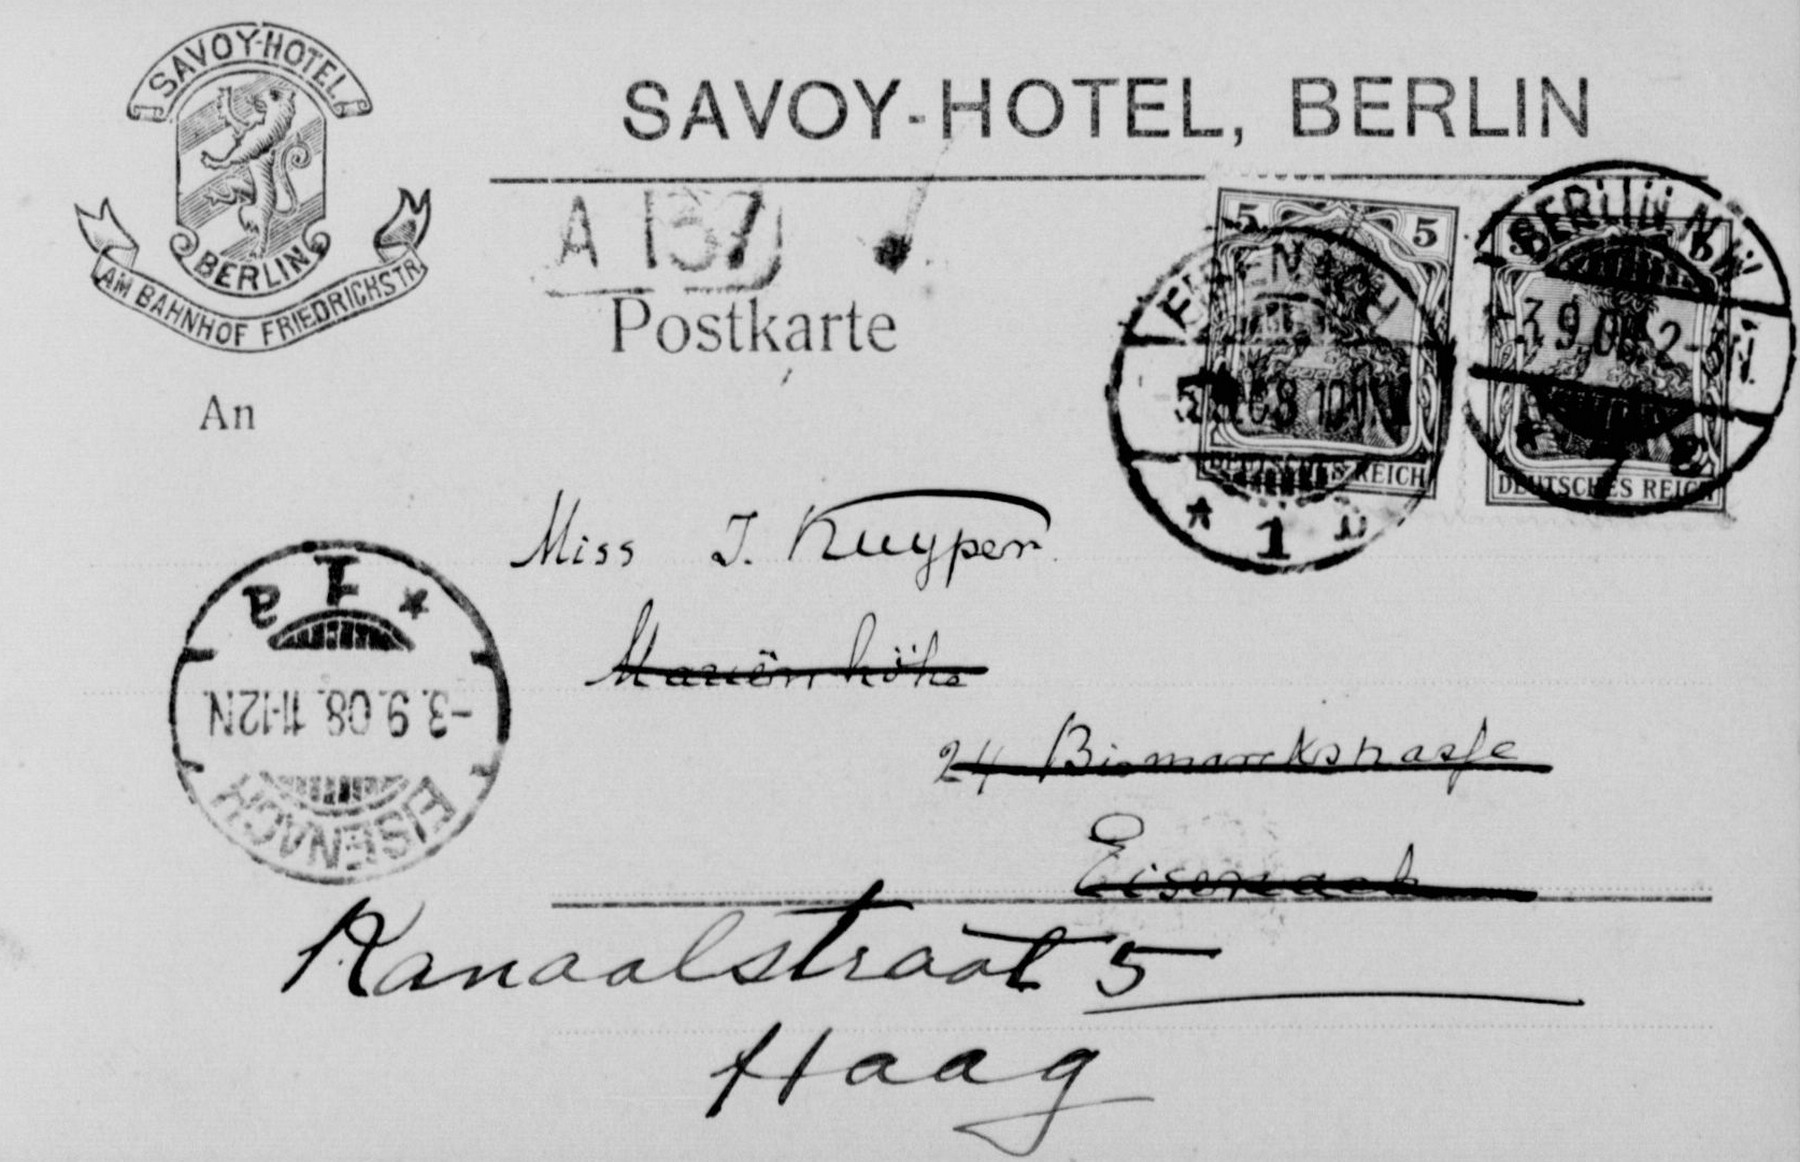 SAVOY-HOTEL
BERLIN
AM BAHNHOF FRIEDRICHSTR.
SAVOY-HOTEL, BERLIN
A 137
Postkarte
An
5 5
DEUTSCHES REICH
EISENACH
08 10-11N
* 1
5
DEUTSCHES REICH
BERLIN N.W.
3.9.08. 2-3N.
* 7
Miss J. Kuyper.
Mariënhöhe
24 Bismarckstrasse
Eisenach
* 1 a
-3.9.08. 11-12N.
EISENACH
Kanaalstraat 5
Haag